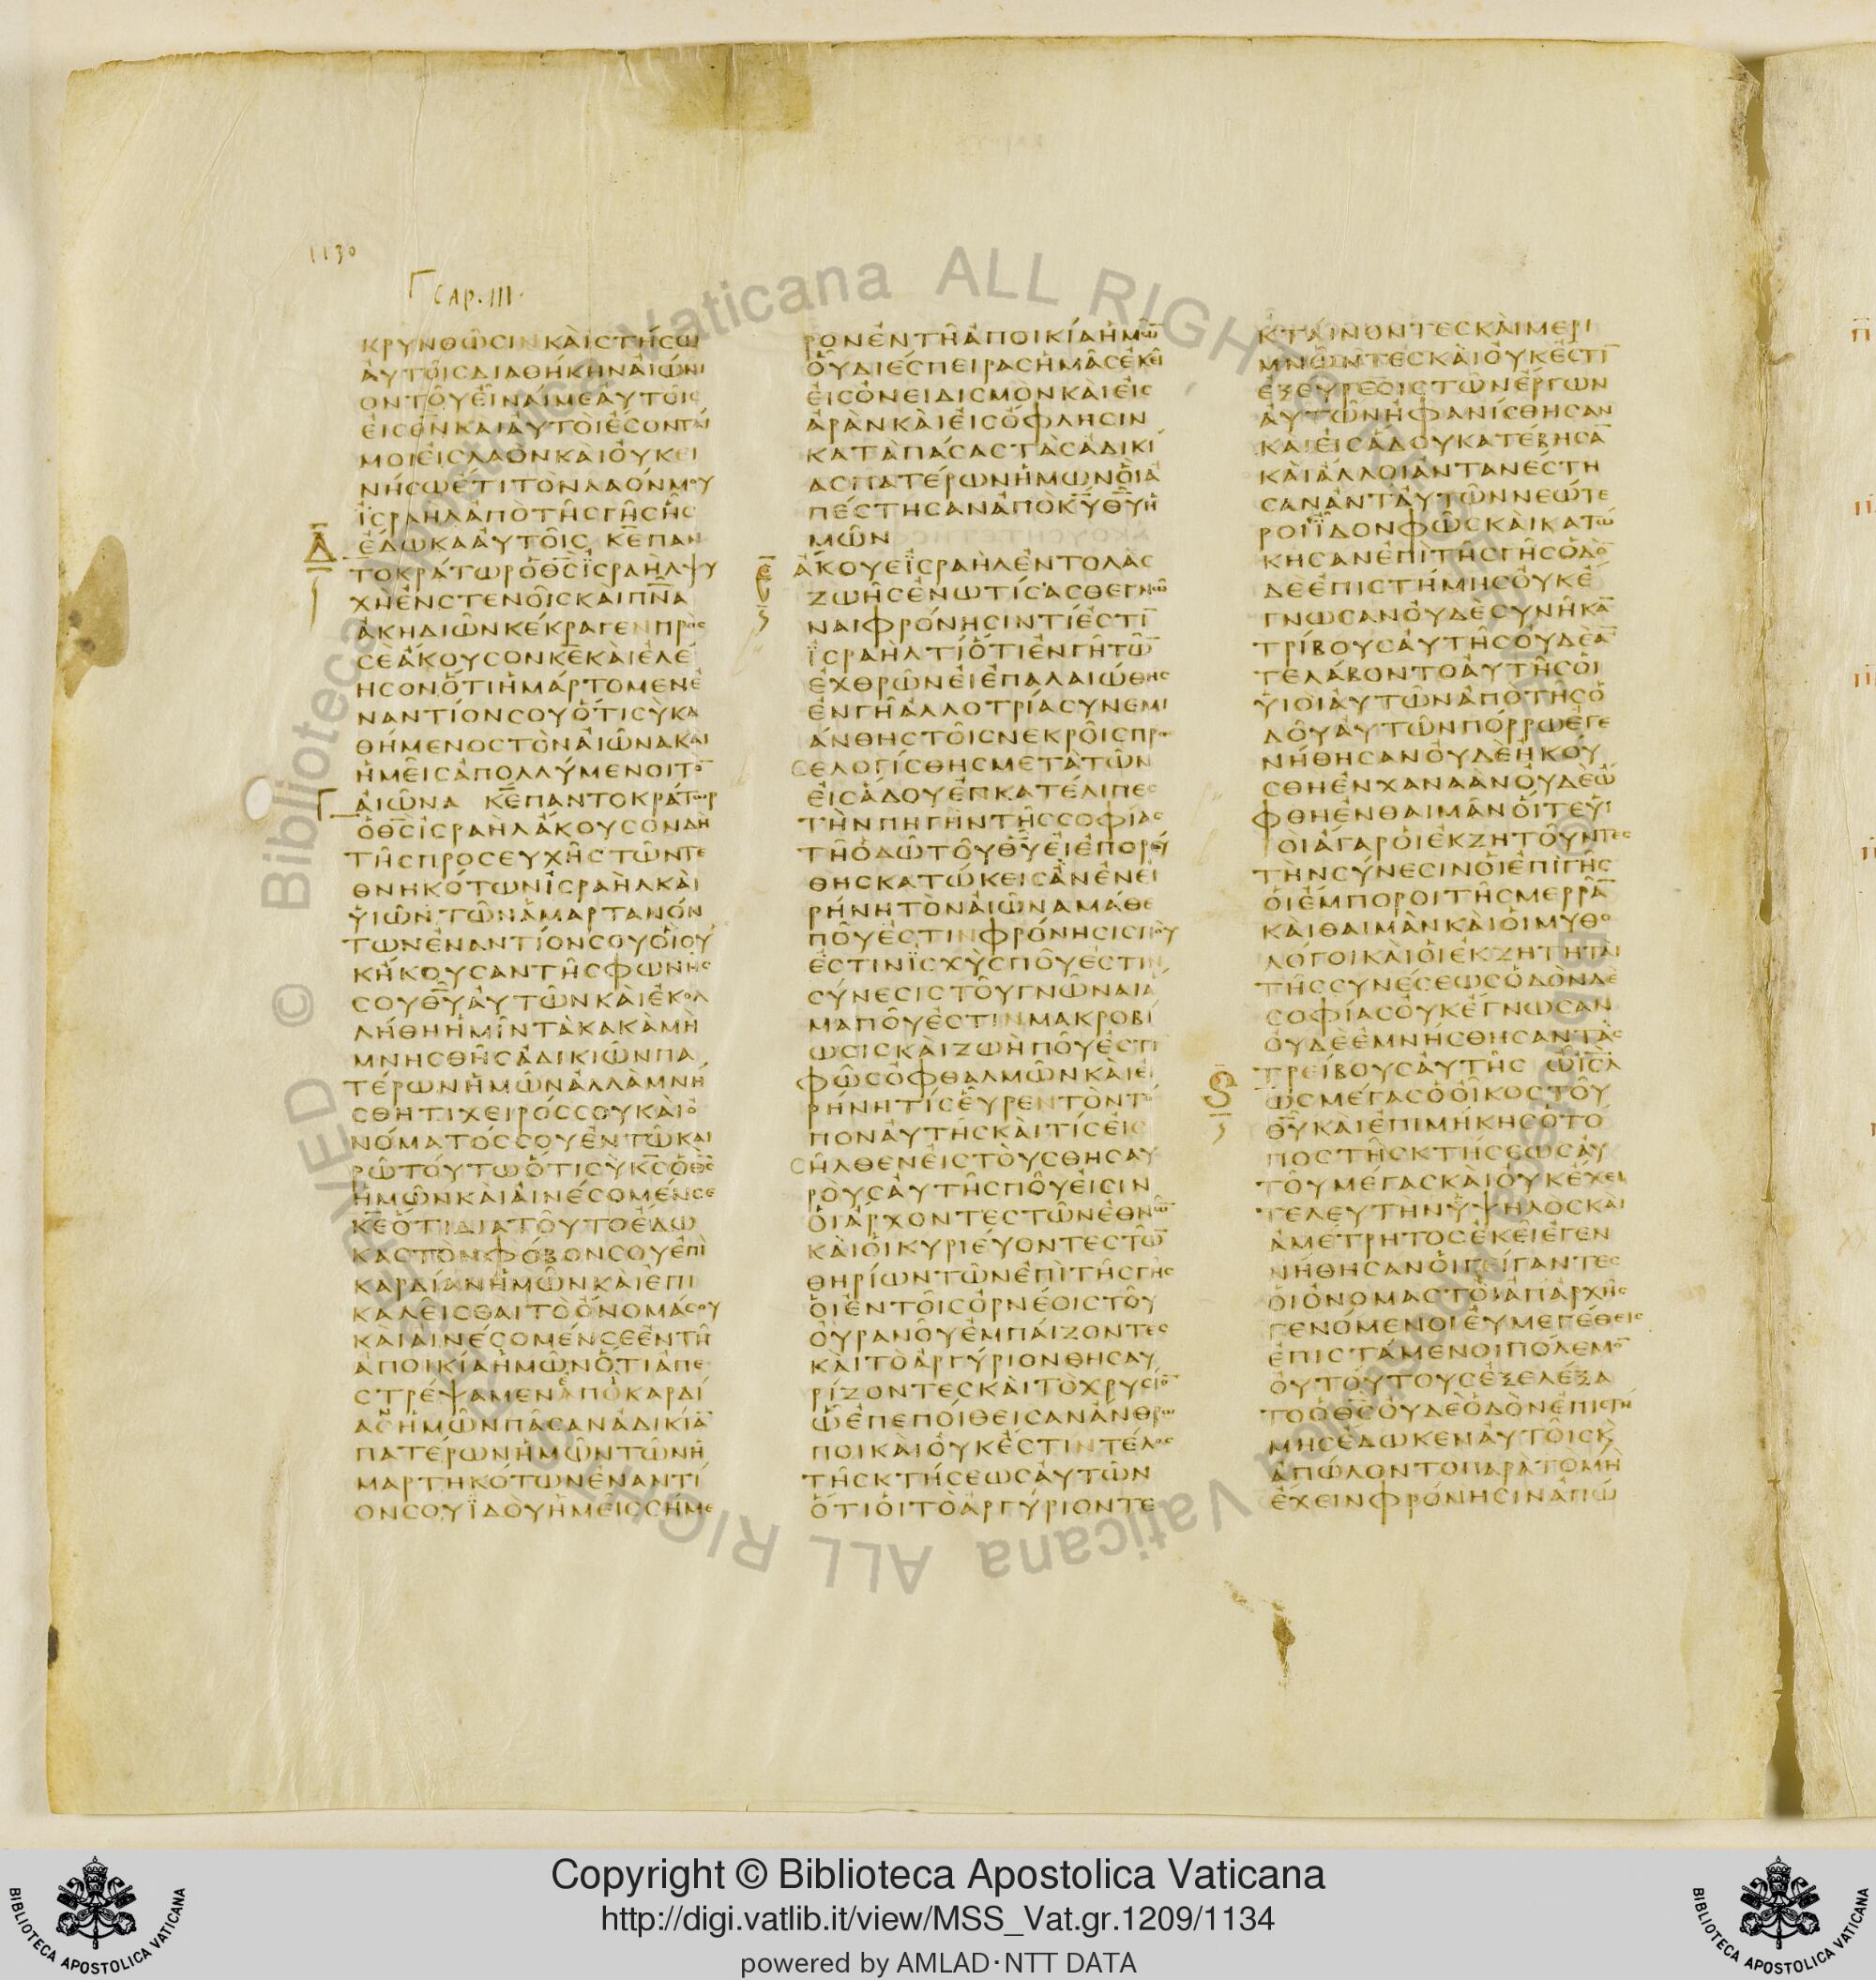 1130
CAP. III.
κρυνθῶσιν καὶ στήσω
αὐτοῖς διαθήκην αἰώνι
ον τοῦ εἶναί με αὐτοῖς
εἰς θν καὶ αὐτοὶ ἔσονταί
μοι εἰς λαὸν καὶ οὐ κει
νήσω ἔτι τὸν λαόν μου
ϊσραὴλ ἀπὸ τῆς γῆς ἧς
Δ
ἔδωκα αὐτοῖς κε παν
τοκράτωρ ὁ θς ϊσραὴλ ψυ
χὴ ἐν στενοῖς καὶ πνα
ἀκηδιῶν κέκραγεν πρὸς
σὲ ἄκουσον κε καὶ ἐλέ
ησον ὅτι ἡμάρτομεν ἐ
ναντίον σου ὅτι σὺ κα
θήμενος τὸν αἰῶνα καὶ
ἡμεῖς ἀπολλύμενοι τὸν
αἰῶνα κε παντοκράτωρ
ὁ θς ϊσραὴλ ἄκουσον δὴ
τῆς προσευχῆς τῶν τε
θνηκότων ϊσραὴλ καὶ
υἱῶν τῶν ἁμαρτανόν
των ἐναντίον σου οἳ οὐ
κ ἤκουσαν τῆς φωνῆς
σου θυ αὐτῶν καὶ ἐκολ
λήθη ἡμῖν τὰ κακὰ μὴ
μνησθῇς ἀδικιῶν πα
τέρων ἡμῶν ἀλλὰ μνή
σθητι χειρός σου καὶ ὀ
νόματός σου ἐν τῷ και
ρῷ τούτω ὅτι σὺ κς ὁ θς
ἡμῶν καὶ αἰνέσομέν σε
κε ὅτι διὰ τοῦτο ἔδω
κας τὸν φόβον σου ἐπὶ
καρδίαν ἡμῶν καὶ ἐπι
καλεῖσθαι τὸ ὄνομά σου
καὶ αἰνέσομέν σε ἐν τῇ
ἀποικίᾳ ἡμῶν ὅτι ἀπε
στρέψαμεν ἀπὸ καρδί
ας ἡμῶν πᾶσαν ἀδικίαν
πατέρων ἡμῶν τῶν ἡ
μαρτηκότων ἐναντί
ον σου ϊδοὺ ἡμεῖς σήμε
ρον ἐν τῇ ἀποικίᾳ ἡμῶν
οὗ διέσπειρας ἡμᾶς ἐκεῖ
εἰς ὀνειδισμὸν καὶ εἰς
ἀρὰν καὶ εἰς ὄφλησιν
κατὰ πάσας τὰς ἀδικί
ας πατέρων ἡμῶν οἳ ἀ
πέστησαν ἀπὸ κυ θυ ἡ
μῶν
Ε
ἄκουε ϊσραὴλ ἐντολὰς
ζωῆς ἐνωτίσασθε γνῶ
ναι φρόνησιν τί ἐστιν
ϊσραὴλ τί ὅτι ἐν γῇ τῶν
ἐχθρῶν εἶ ἐπαλαιώθης
ἐν γῇ ἀλλοτρίᾳ συνεμι
άνθης τοῖς νεκροῖς προ
σελογίσθης μετὰ τῶν
εἰς ᾅδου ἐνκατέλιπες
τὴν πηγὴν τῆς σοφίας
τῇ ὁδῷ τοῦ θυ εἰ ἐπορεύ
θης κατῴκεις ἂν ἐν εἰ
ρήνῃ τὸν αἰῶνα μάθε
ποῦ ἐστιν φρόνησις ποῦ
ἐστιν ϊσχὺς ποῦ ἐστιν
σύνεσις τοῦ γνῶναι ἅ
μα ποῦ ἐστιν μακροβί
ωσις καὶ ζωὴ ποῦ ἐστιν
φῶς ὀφθαλμῶν καὶ εἰ
ρήνη τίς εὗρεν τὸν τό
πον αὐτῆς καὶ τίς εἰς
σῆλθεν εἰς τοὺς θησαυ
ροὺς αὐτῆς ποῦ εἰσιν
οἱ ἄρχοντες τῶν ἐθνῶν
καὶ οἱ κυριεύοντες τῶν
θηρίων τῶν ἐπὶ τῆς γῆς
οἱ ἐν τοῖς ὀρνέοις τοῦ
οὐρανοῦ ἐμπαίζοντες
καὶ τὸ ἀργύριον θησαυ
ρίζοντες καὶ τὸ χρυσίον
ᾧ ἐπεποίθεισαν ἄνθρω
ποι καὶ οὐκ ἔστιν τέλος
τῆς κτήσεως αὐτῶν
ὅτι οἱ τὸ ἀργύριον τε
κταίνοντες καὶ μερι
μνῶντες καὶ οὐκ ἔστιν
ἐξεύρεσις τῶν ἔργων
αὐτῶν ἠφανίσθησαν
καὶ εἰς ᾅδου κατέβησαν
καὶ ἄλλοι ἀντανέστη
σαν ἀντ αὐτῶν νεώτε
ροι ϊδον φῶς καὶ κατῴ
κησαν ἐπὶ τῆς γῆς ὁδὸν
δὲ ἐπιστήμης οὐκ ἔ
γνωσαν οὐδὲ συνῆκαν
τρίβους αὐτῆς οὐδὲ ἀν
τελάβοντο αὐτῆς οἱ
υἱοὶ αὐτῶν ἀπὸ τῆς ὁ
δοῦ αὐτῶν πόρρω ἐγε
νήθησαν οὐδὲ ἠκού
σθη ἐν χαναὰν οὐδὲ ὤ
φθη ἐν θαιμάν οὔτε υἱ
οὶ ἅγαρ οἱ ἐκζητοῦντες
τὴν σύνεσιν οἱ ἐπὶ γῆς
οἱ ἔμποροι τῆς μερρὰν
καὶ θαιμὰν καὶ οἱ μυθο
λόγοι καὶ οἱ ἐκζητηταὶ
τῆς συνέσεως ὁδὸν δὲ
σοφίας οὐκ ἔγνωσαν
οὐδὲ ἐμνήσθησαν τὰς
τρείβους αὐτῆς ὦ ισλ
ὡς μέγας ὁ οἶκος τοῦ
θυ καὶ ἐπιμήκης ὁ τό
πος τῆς κτήσεως αὐ
τοῦ μέγας καὶ οὐκ ἔχει
τελευτὴν ὑψηλὸς καὶ
ἀμέτρητος ἐκεῖ ἐγεν
νήθησαν οἱ γείγαντες
οἱ ὀνομαστοὶ ἀπ ἀρχῆς
γενόμενοι εὐμεγέθεις
ἐπιστάμενοι πόλεμον
οὐ τούτους ἐξελέξα
το ὁ θς οὐδὲ ὁδὸν ἐπιστή
μης ἔδωκεν αὐτοῖς κ
ἀπώλοντο παρὰ τὸ μὴ
ἔχειν φρόνησιν ἀπώ
Copyright © Biblioteca Apostolica Vaticana
http://digi.vatlib.it/view/MSS_Vat.gr.1209/1134
powered by AMLAD·NTT DATA
BIBLIOTECA APOSTOLICA VATICANA
BIBLIOTECA APOSTOLICA VATICANA